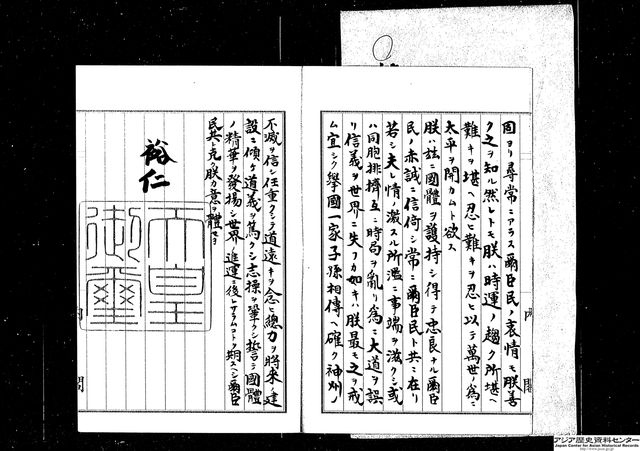 固ヨリ尋常ニアラス爾臣民ノ衷情モ朕善
ク之ヲ知ル然レトモ朕ハ時運ノ趨ク所堪ヘ
難キヲ堪ヘ忍ヒ難キヲ忍ヒ以テ萬世ノ爲ニ
太平ヲ開カムト欲ス
朕ハ茲ニ國體ヲ護持シ得テ忠良ナル爾臣
民ノ赤誠ニ信倚シ常ニ爾臣民ト共ニ在リ
若シ夫レ情ノ激スル所濫ニ事端ヲ滋クシ或
ハ同胞排擠互ニ時局ヲ亂リ爲ニ大道ヲ誤
リ信義ヲ世界ニ失フカ如キハ朕最モ之ヲ戒
ム宜シク擧國一家子孫相傳ヘ確ク神州ノ
不滅ヲ信シ任重クシテ道遠キヲ念ヒ總力ヲ將來ノ建
設ニ傾ケ道義ヲ篤クシ志操ヲ鞏クシ誓テ國體
ノ精華ヲ發揚シ世界ノ進運ニ後レサラムコトヲ期スヘシ爾臣
民其レ克ク朕カ意ヲ體セヨ
裕仁
天皇
御璽
アジア歴史資料センター
Japan Center for Asian Historical Records
http://www.jacar.go.jp